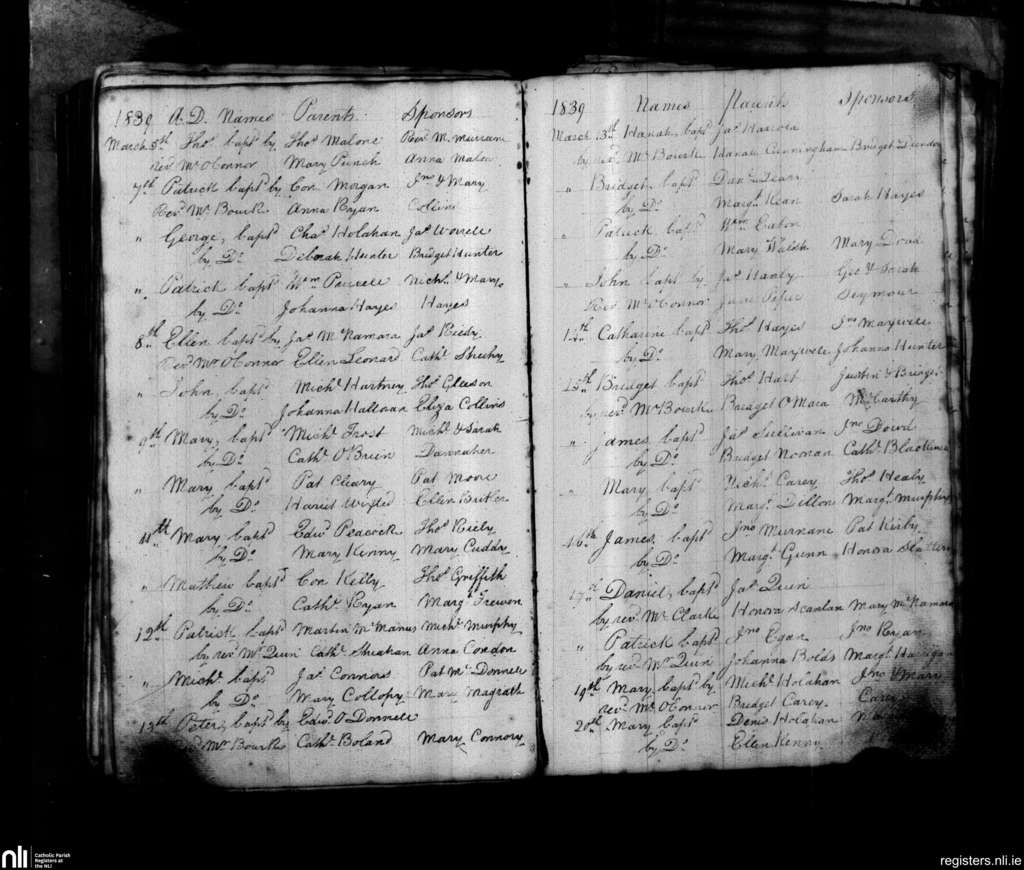 1839 A.D. Names Parents Sponsors
March 5th Thos. bapd by Thos. Malone Revd. M.
revd. Mr. O'Connor Mary Punch Anna Malon
7th Patrick bapd by Con Morgan Jno. & Mary
Revd. Mr. Bourke Anna Ryan Collins
" George, bapd Chas. Holahan Jas.
by Do. Deborah Hunter Bridget Hunter
" Patrick bapd Wm. Michl. & Mary
by Do. Johanna Hayes Hayes
8th Ellen bapd by Jas. McNamara Jas.
revd. Mr. O'Connor Ellen Leonard Cathe. Sheehy
" John, bapd Michl. Hartney Thos. Gleeson
by Do. Johanna Eliza Collins
9th Mary, bapd Michl. Frost Michl. & Sarah
by Do. Cathe. O'Brien Dannaher
" Mary bapd Pat Cleary Pat Moore
by Do. Ellen Butler
11th Mary bapd Edwd. Peacock Thos. Riely
by Do. Mary Kenny Mary Cuddy
" Mathew bapd Con Kelly Thos. Griffith
by Do. Cathe. Ryan Margt.
12th Patrick bapd Martin McManus Michl. Murphy
by revd. Mr. Quin Cathe. Sheahan Anna Condon
" Michl. bapd Jas. Connors Pat McDonnell
by Do. Mary Collopy Mary Magrath
13th Peter, bapd by Edwd. O'Donnell
Mr. Bourke Cathe. Boland Mary Connory
1839 Names Parents Sponsors
March 13th Hanah, bapd Jas.
by revd. Mr. Bourke Hanah Cunningham Bridget
" Bridget bapd Danl.
by Do. Margt. Kean Sarah Hayes
" Patrick bapd Wm. Eaton
by Do. Mary Walsh Mary Doud
" John bapd by Jas. Healy Geo. & Sarah
Revd. Mr. O'Connor Jane Seymour
14th Catharine bapd Thos. Hayes Jno. Maxwell
by Do. Mary Maxwell Johanna Hunter
15th Bridget bapd Thos. Hart Justin & Bridget
by revd. Mr. Bourke Bridget O'Mara McCarthy
" James bapd Jas. Sullivan Jno. Dowd
by Do. Bridget Noonan Cathe.
" Mary bapd Michl. Carey Thos. Healy
by Do. Margt. Dillon Margt. Murphy
16th James, bapd Jno. Murnane Pat Kirby
by Do. Margt. Gunn Honora
17th Daniel, bapd Jas. Quin
by revd. Mr. Clarke Honora Scanlan Mary McNamara
" Patrick bapd Jno. Egan Jno. Ryan
by revd. Mr. Quin Johanna Bolds Margt.
19th Mary bapd by Michl. Holahan Jno. & Mary
revd. Mr. O'Connor Bridget Carey Carey
20th Mary bapd Denis Holahan
by Do. Ellen Kenny
nli Catholic Parish
Registers at
the NLI
registers.nli.ie